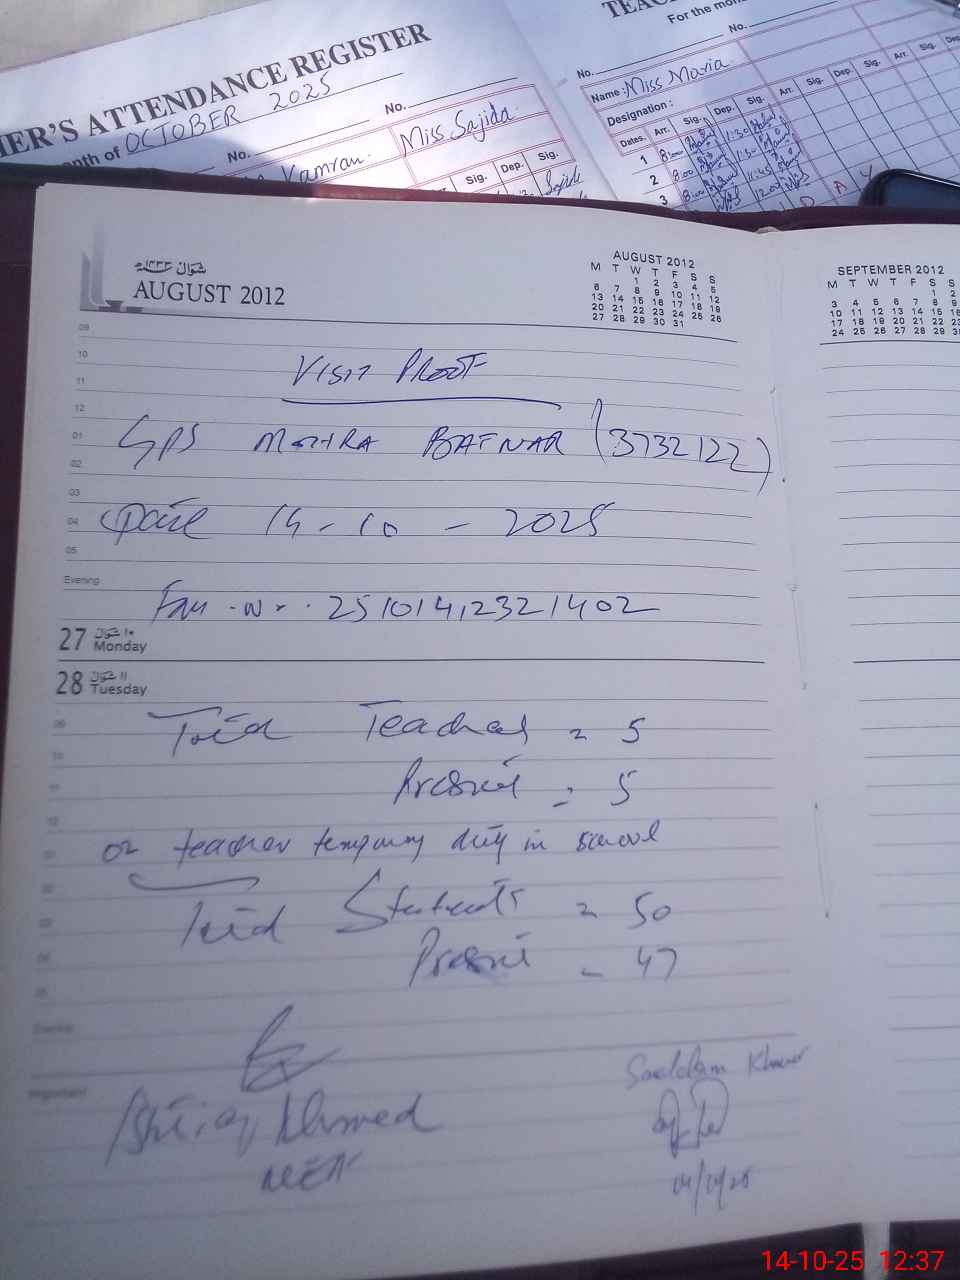 HER'S ATTENDANCE REGISTER
nth of OCTOBER 2025
No.
No.
Kamran.
Miss Sajida
Sig. Dep. Sig.
TEAC
For the mon
No.
No.
Name: Miss Maria
Designation:
Dates Arr. Sig. Dep. Sig. Arr. Sig. Dep. Sig. Arr. Sig. Dep
1 8:00 11:30
2 8:00 11:30
3 8:00 11:45
12:00
P A
شوال ١٤٣٣هـ
AUGUST 2012
AUGUST 2012
M T W T F S S
1 2 3 4 5
6 7 8 9 10 11 12
13 14 15 16 17 18 19
20 21 22 23 24 25 26
27 28 29 30 31
SEPTEMBER 2012
M T W T F S
1 2
3 4 5 6 7 8 9
10 11 12 13 14 15 16
17 18 19 20 21 22 23
24 25 26 27 28 29 30
09
10
VISIT PROOF
11
12
01
GPS MOHRA BATNAR (3732122)
02
03
04
Date 14-10-2025
05
Evening
25101412321402
27 ١٠ شوال Monday
28 ١١ شوال Tuesday
09
Total Teachers = 5
10
11
Present = 5
12
01
02 teacher temporary duty in school
02
03
Total Students = 50
04
Present = 47
05
Evening
Important
Saddam Khan
Ishtiaq Ahmed
MEA
14/10/25
14-10-25 12:37